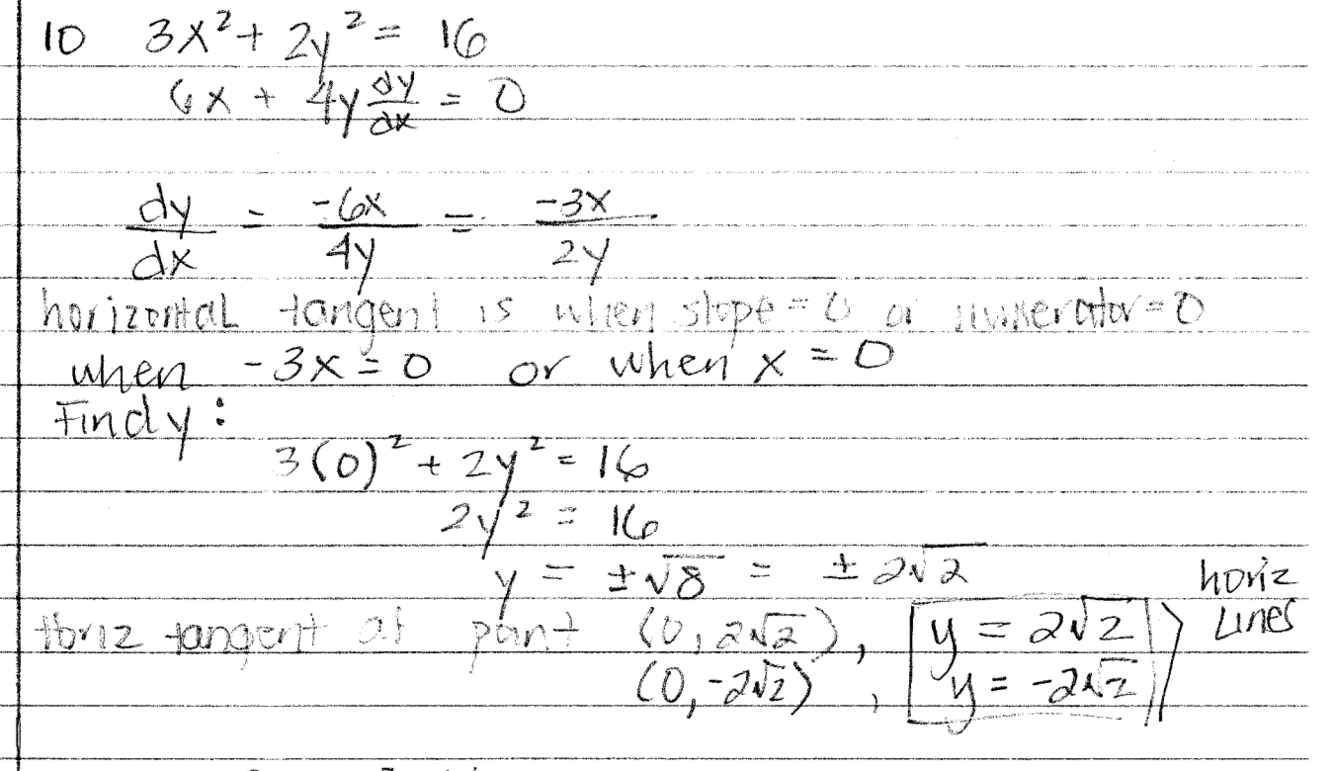 10 3x² + 2y² = 16
6x + 4y dy/dx = 0
dy/dx = -6x/4y = -3x/2y
horizontal tangent is when slope = 0 or numerator = 0
when -3x = 0 or when x = 0
Find y:
3(0)² + 2y² = 16
2y² = 16
y = ±√8 = ±2√2
horiz tangent at point (0, 2√2), y = 2√2 horiz
(0, -2√2), y = -2√2 Lines